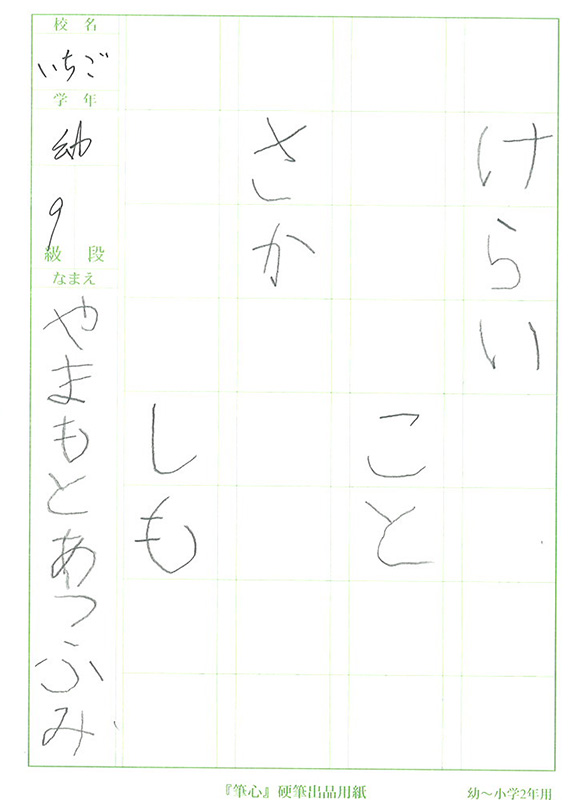 けらい
こと
さか
しも
校名
いちご
学年
幼
9
級段
なまえ
やまもとあつふみ
『筆心』硬筆出品用紙
幼～小学2年用